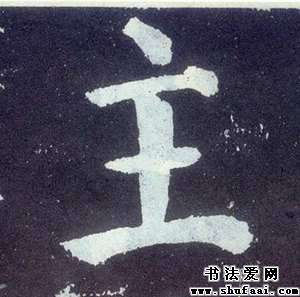 主
书法爱网
www.shufaai.com